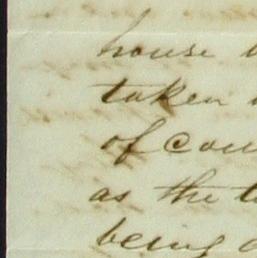 house
taken
of cou
as the
being